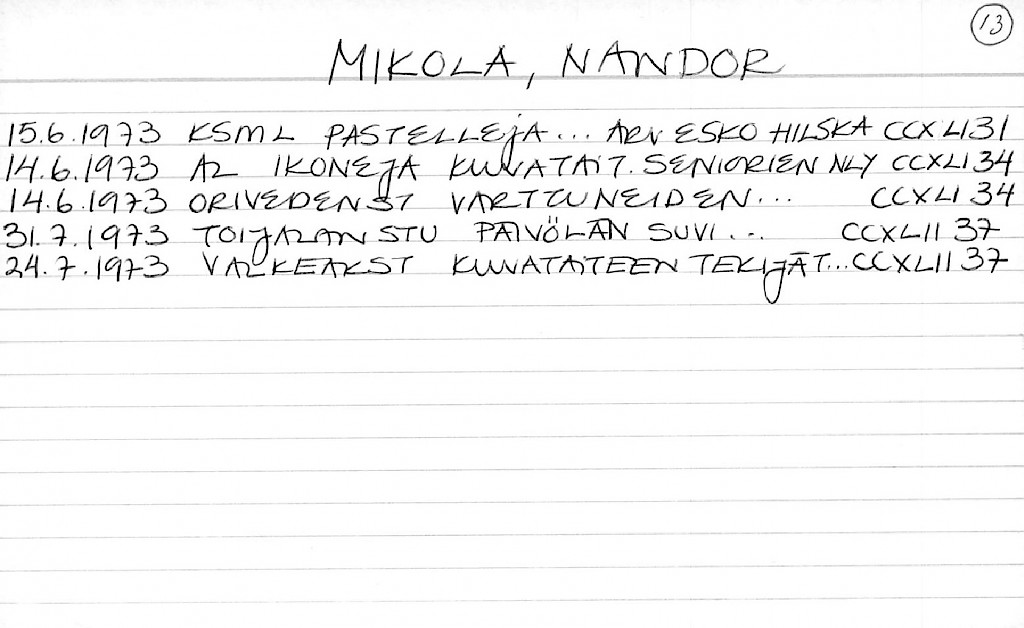 13
MIKOLA, NANDOR
15.6.1973 KSML PASTELLEJA... ARV ESKO HILSKA CCXLI 31
14.6.1973 AL IKONEJA KUVATAIT. SENIORIEN NLY CCXLI 34
14.6.1973 ORIVEDEN ST VARTTUNEIDEN... CCXLI 34
31.7.1973 TOIJALAN STU PÄIVÖLÄN SUVI... CCXLII 37
24.7.1973 VALKEAK ST KUVATAITEEN TEKIJÄT... CCXLII 37